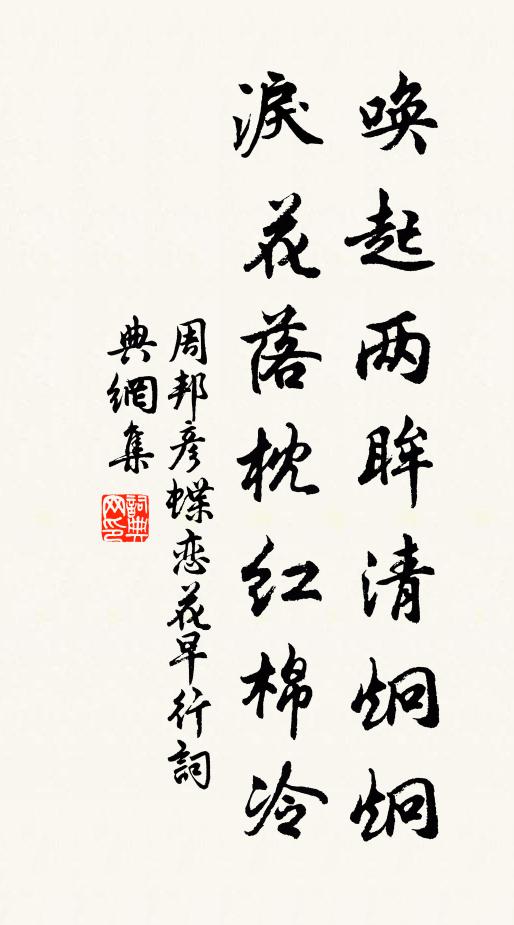 唤起两眸清炯炯
淚花落枕红棉冷
周邦彦蝶恋花早行詞
典網集
詞典网印